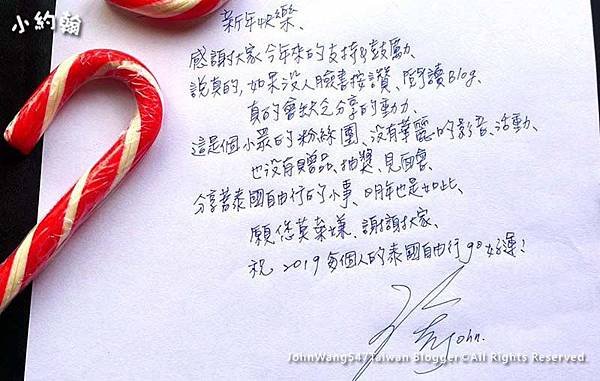 小約翰
新年快樂、
感謝大家今年來的支持&鼓勵、
說真的,如果沒人臉書按讚、閱讀Blog、
真的會缺乏分享的動力、
這是個小眾的粉絲團、沒有華麗的影音、活動、
也沒有贈品、抽獎、見面會、
分享著泰國自由行的小事、明年也是如此、
願您莫棄嫌、謝謝大家、
祝 2019 每個人的泰國自由行 go 好運!
John.
JohnWang547 Taiwan Blogger©All Rights Reserved.